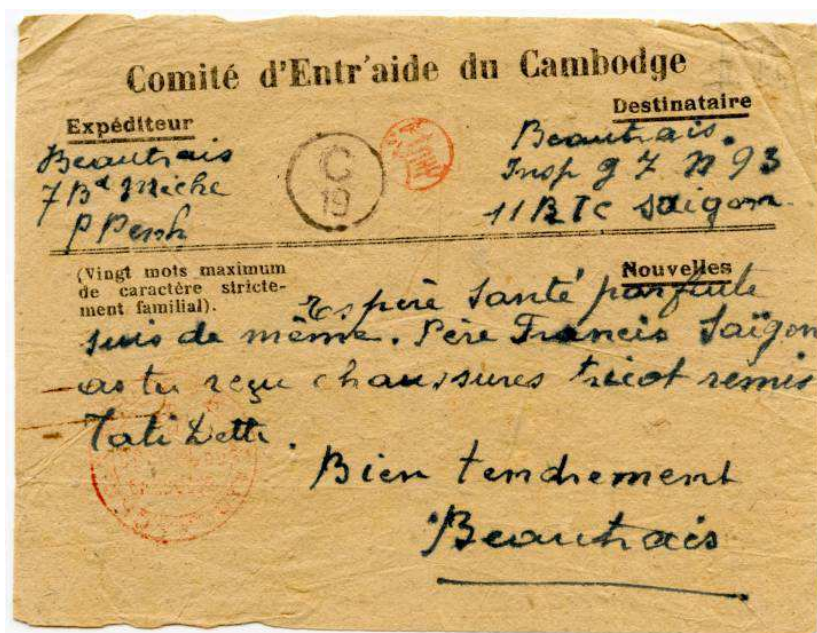 Comité d'Entr'aide du Cambodge
Expéditeur
Beautrais
7 Bd Miche
P Penh
C
19
Destinataire
Beautrais.
Insp g 7 N 93
11 R I C Saïgon
(Vingt mots maximum
de caractère stricte-
ment familial).
Nouvelles
Espère santé parfaite
suis de même. Père Francis Saïgon
as tu reçu chaussures tricot remis
Tati Dette.
Bien tendrement
Beautrais